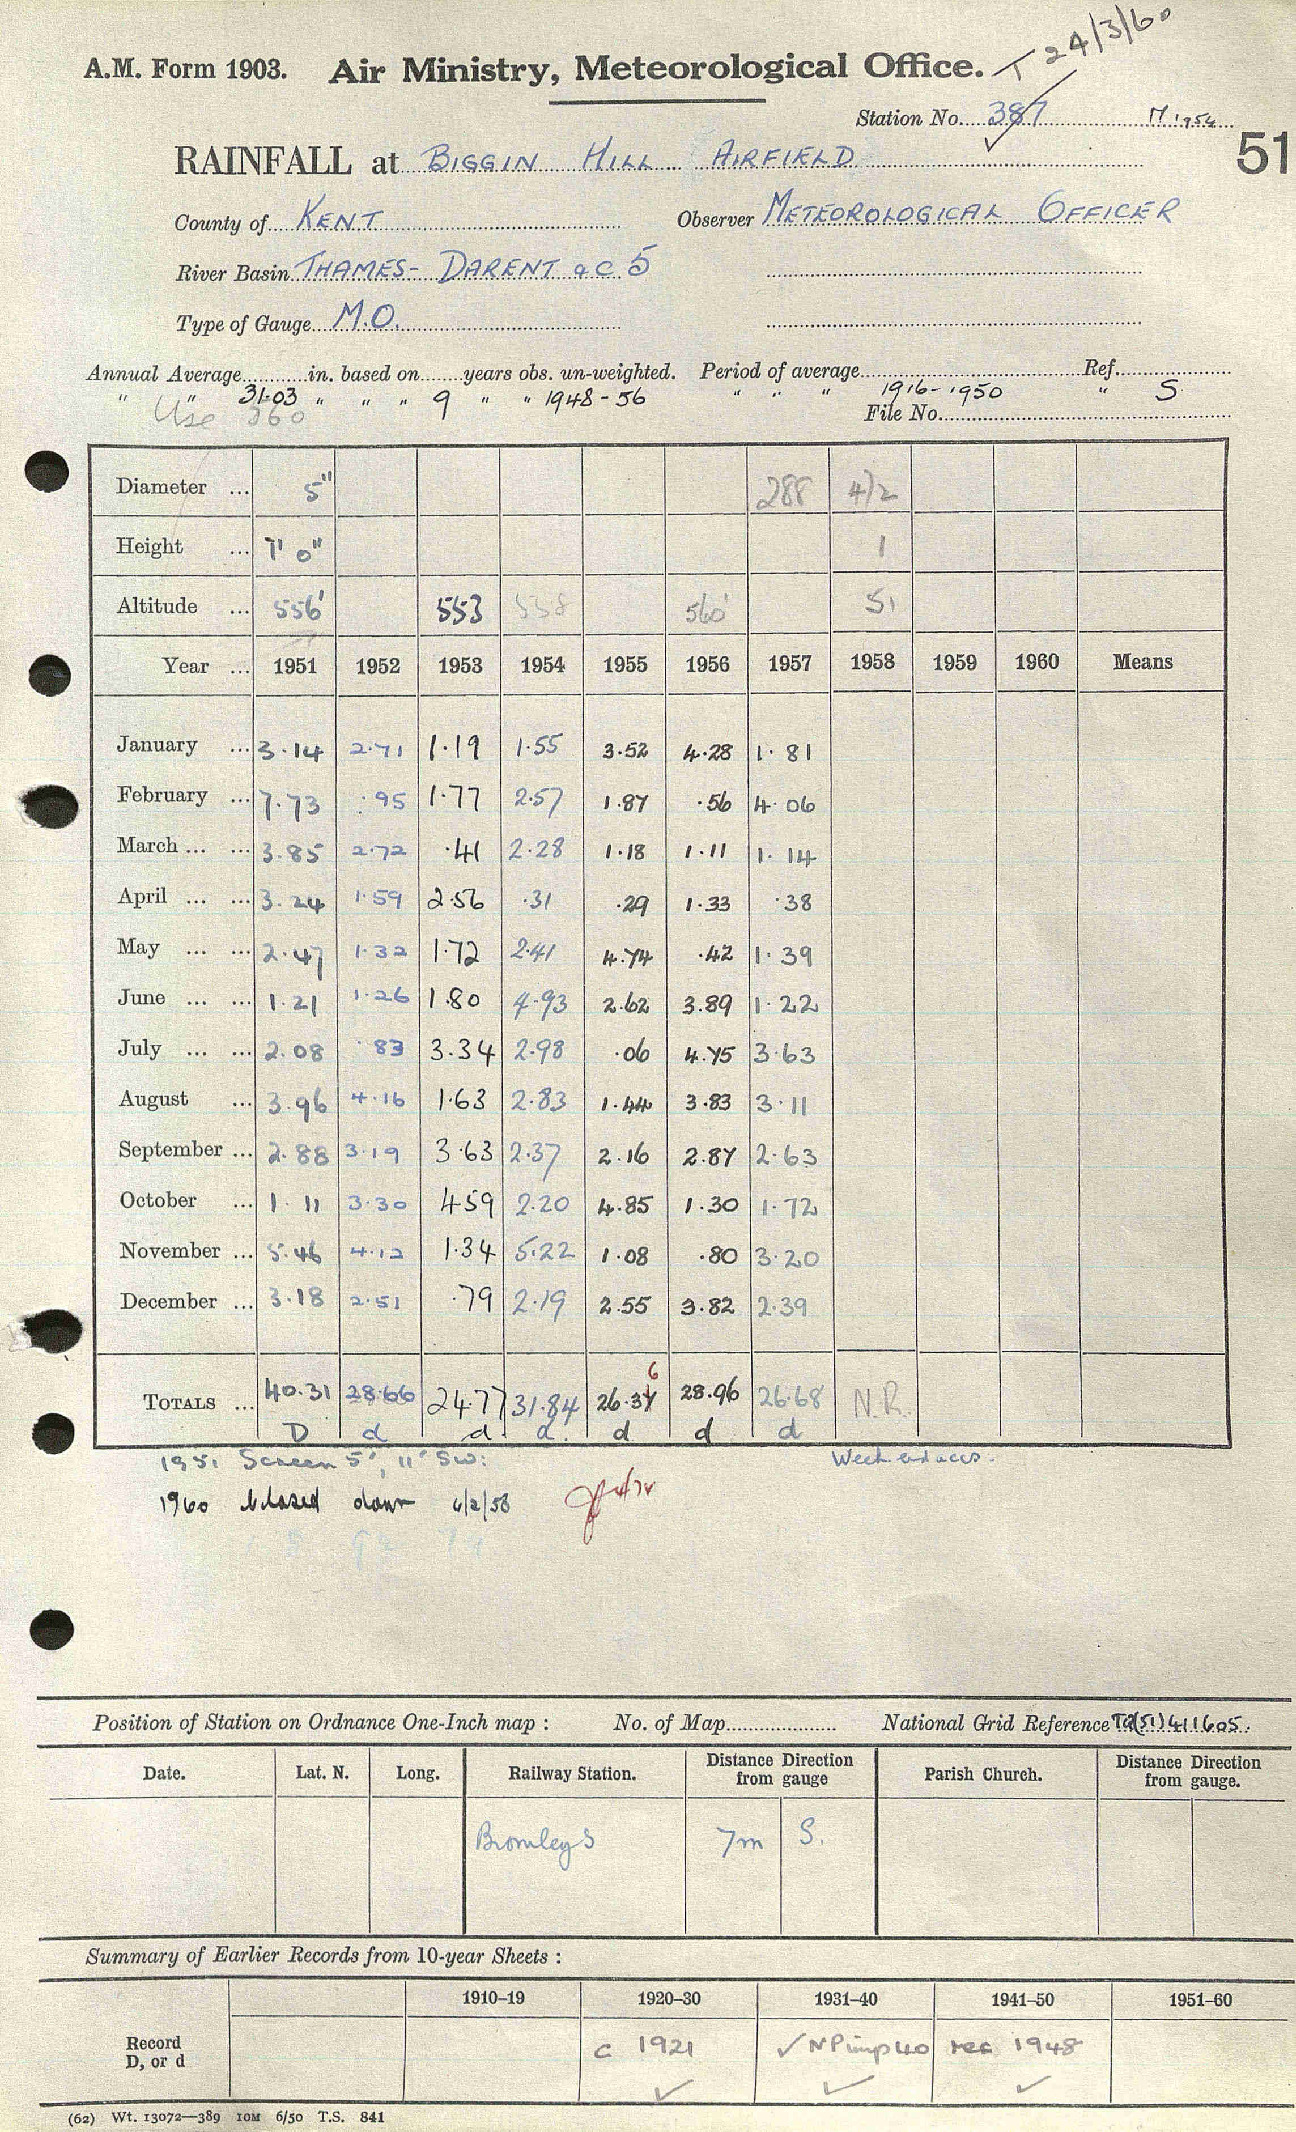 T 24/3/60
A.M. Form 1903. Air Ministry, Meteorological Office.
Station No. 387 M 1954
51
RAINFALL at BIGGIN HILL AIRFIELD
County of KENT Observer METEOROLOGICAL OFFICER
River Basin THAMES - DARENT a c 5
Type of Gauge M.O.
Annual Average in. based on years obs. un-weighted. Period of average Ref.
" " 31.03 " " " 9 " " 1948-56 " " " 1916-1950 " S
Use 360 File No.
Diameter ... 5" 288 4/2
Height ... 1' 0" 1
Altitude ... 556' 553 558 560' 51
Year ... 1951 1952 1953 1954 1955 1956 1957 1958 1959 1960 Means
January ... 3.14 2.71 1.19 1.55 3.52 4.28 1.81
February ... 7.73 .95 1.77 2.57 1.87 .56 4.06
March ... ... 3.85 2.72 .41 2.28 1.18 1.11 1.14
April ... ... 3.24 1.59 2.56 .31 .29 1.33 .38
May ... ... 2.47 1.32 1.72 2.41 4.74 .42 1.39
June ... ... 1.21 1.26 1.80 4.93 2.62 3.89 1.22
July ... ... 2.08 .83 3.34 2.98 .06 4.75 3.63
August ... 3.96 4.16 1.63 2.83 1.44 3.83 3.11
September ... 2.88 3.19 3.63 2.37 2.16 2.87 2.63
October ... 1.11 3.30 4.59 2.20 4.85 1.30 1.72
November ... 5.46 4.12 1.34 5.22 1.08 .80 3.20
December ... 3.18 2.51 .79 2.19 2.55 3.82 2.39
6
TOTALS ... 40.31 28.66 24.77 31.84 26.34 28.96 26.68 N.R.
D d d d. d d d
1951 Screen 5', 11' SW. Week end accs.
1960 closed down 6/2/58
Position of Station on Ordnance One-Inch map : No. of Map National Grid Reference TQ(51)411605.
Date. Lat. N. Long. Railway Station. Distance Direction from gauge Parish Church. Distance Direction from gauge.
Bromley S 7m S.
Summary of Earlier Records from 10-year Sheets :
1910–19 1920–30 1931–40 1941–50 1951–60
Record D, or d c 1921 ✓ rec 1948
✓ ✓ ✓
(62) Wt. 13072—389 10M 6/50 T.S. 841